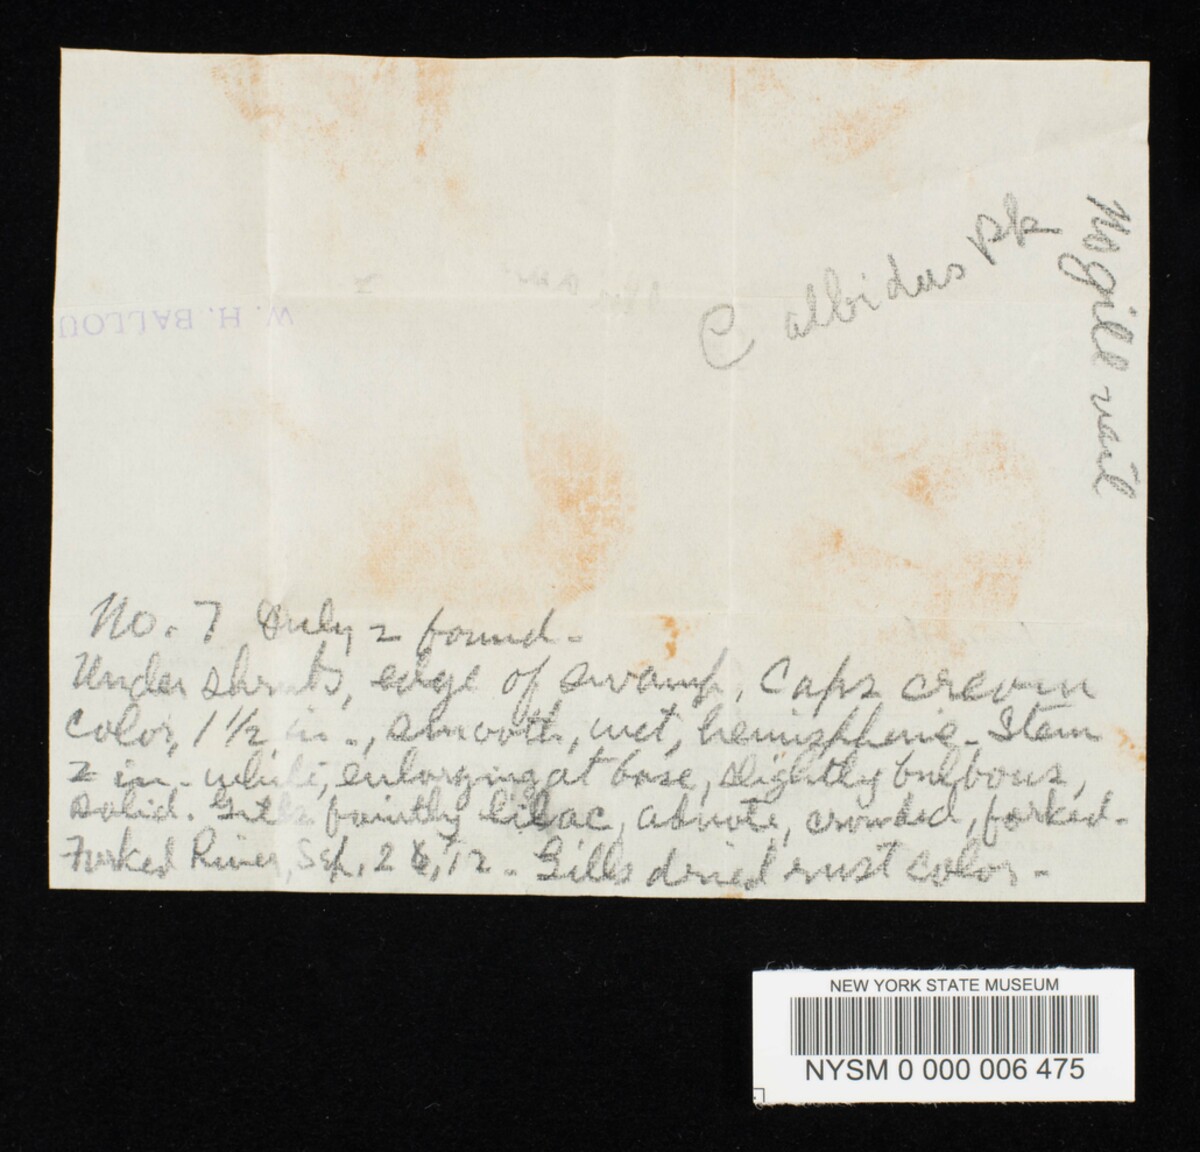 C albidus Pk
No gill veil
W. H. BALLOU
No. 7 Only 2 found -
Under shrubs, edge of swamp, Caps cream
color, 1 1/2 in., smooth, wet, hemispheric - Stem
2 in. white, enlarging at base, slightly bulbous,
solid. Gills faintly lilac, adnate, crowded, forked -
Forked River, Sep, 26, '12 - Gills dried rust color -
NEW YORK STATE MUSEUM
NYSM 0 000 006 475